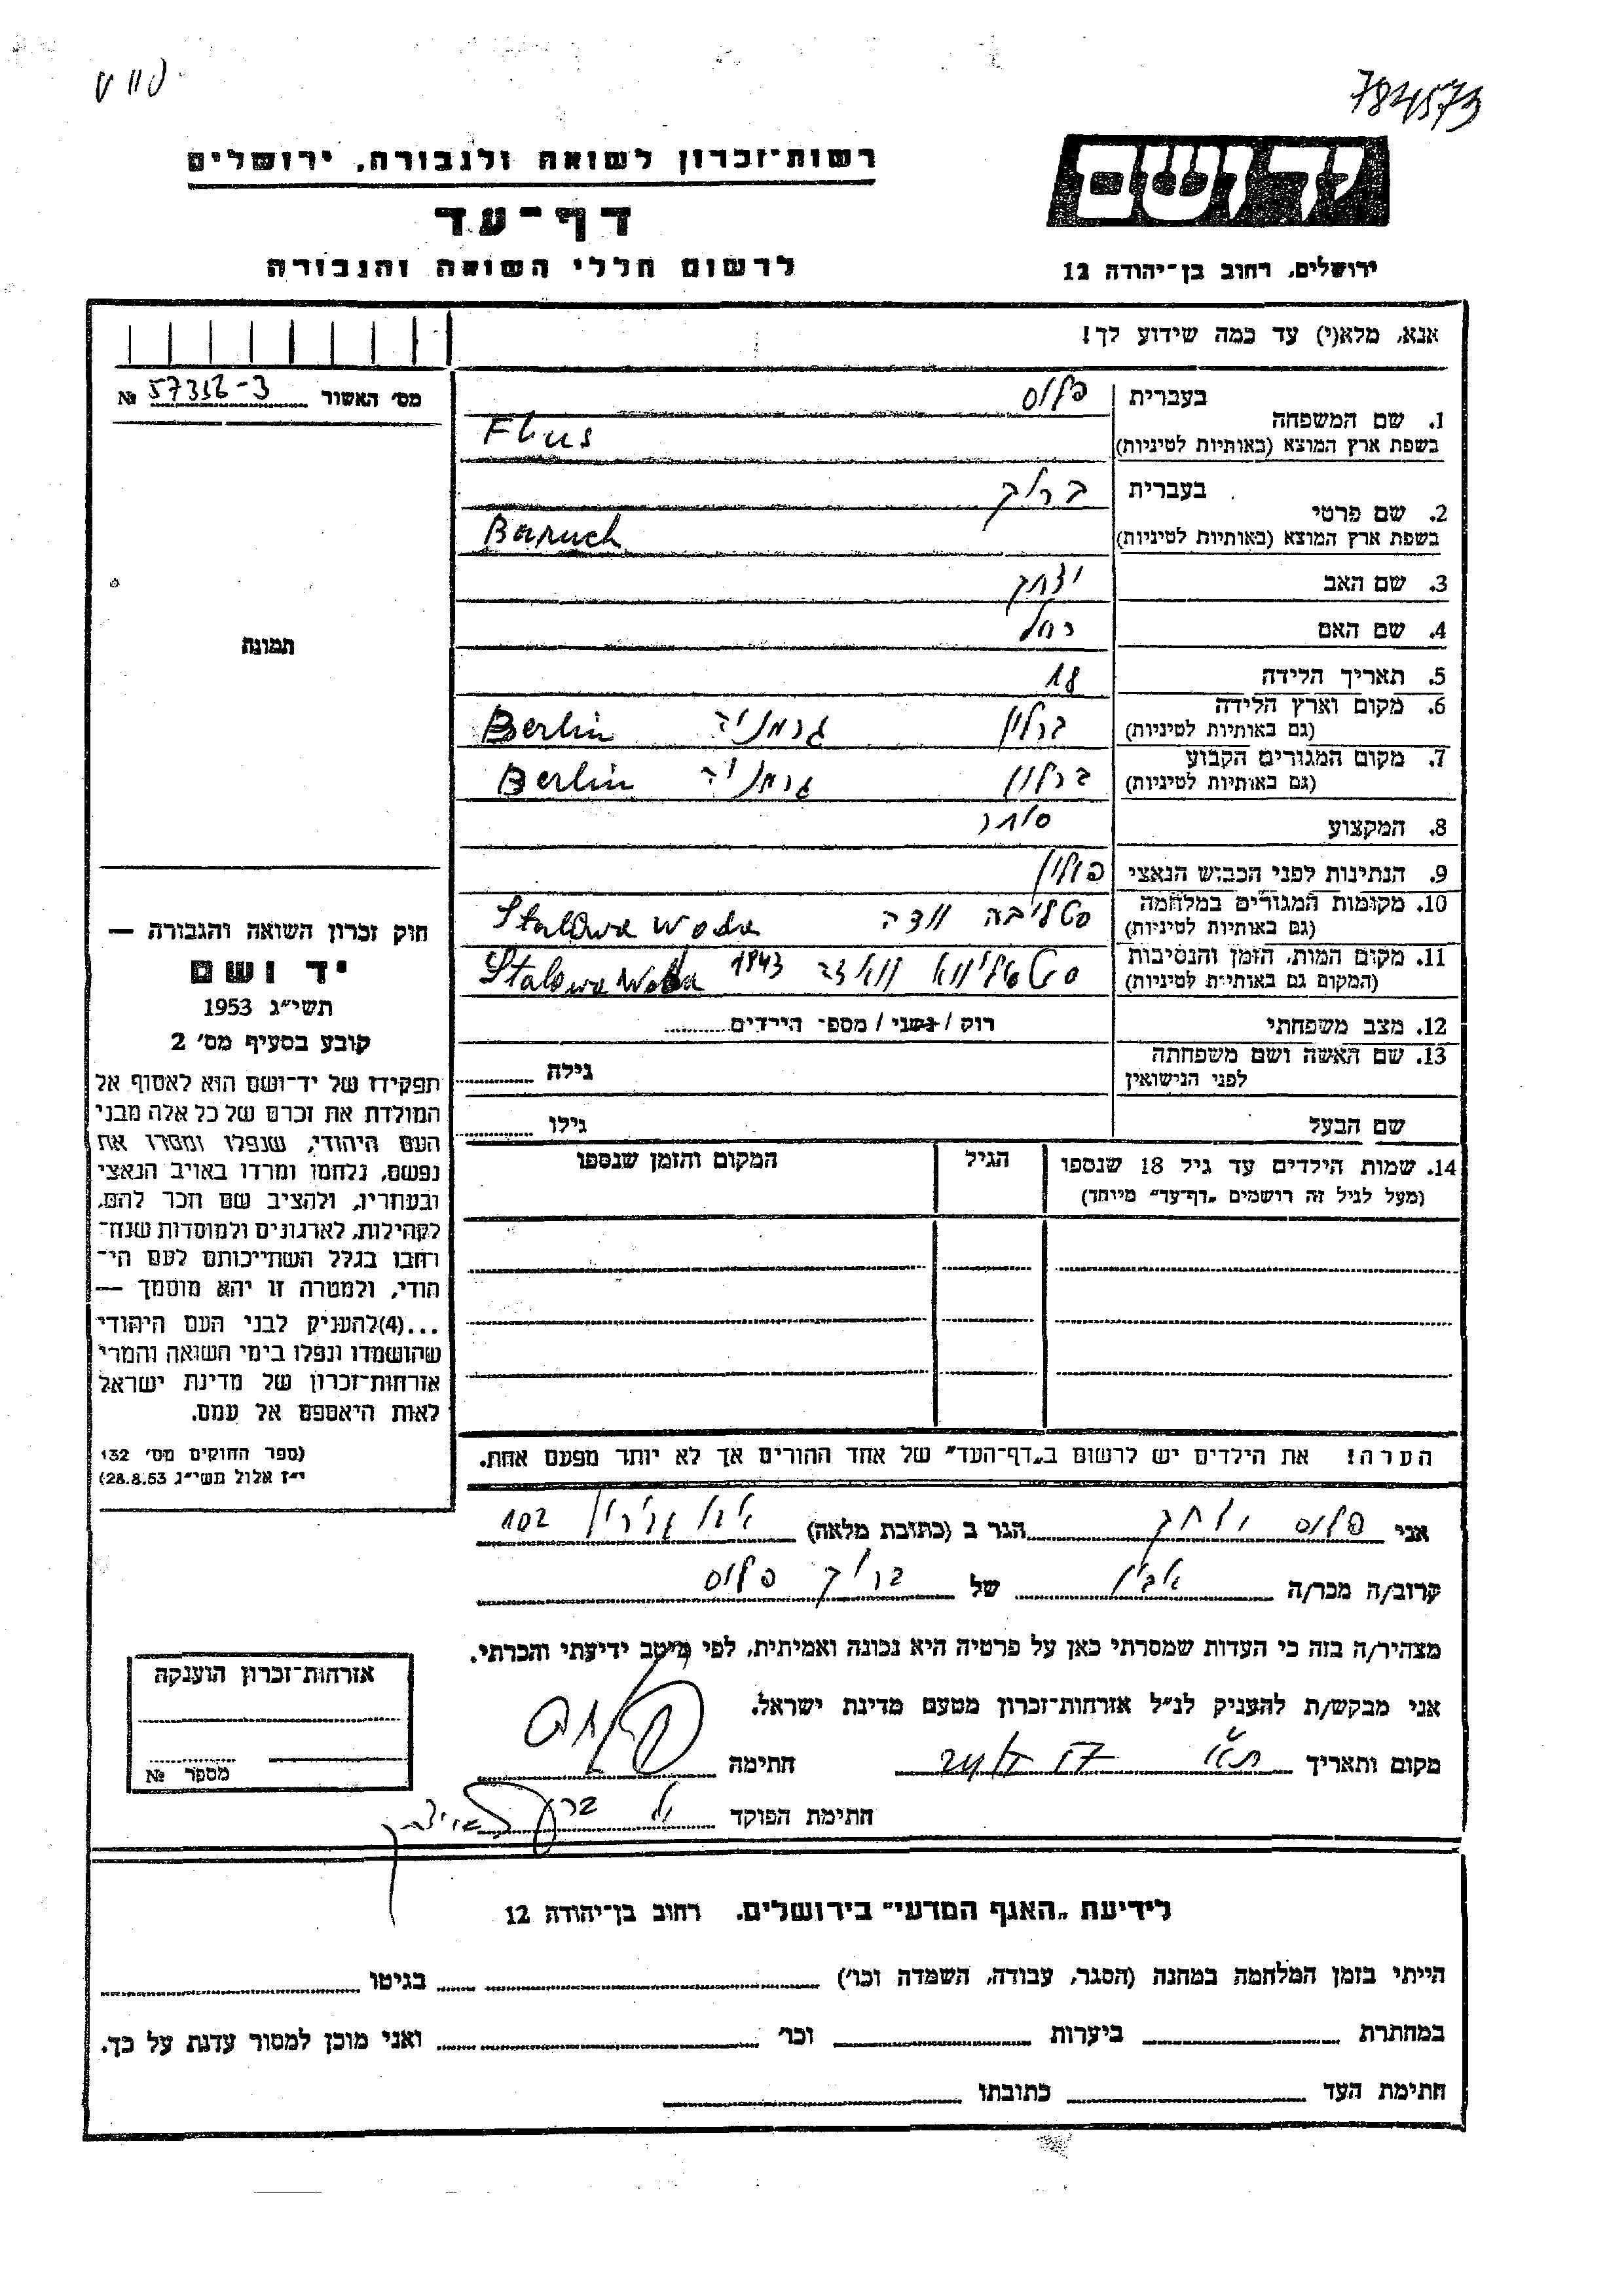 784573
רשות־זכרון לשואה ולגבורה, ירושלים
יד ושם
דף־עד
לרשום חללי השואה והגבורה
ירושלים, רחוב בן־יהודה 12
אנא, מלא(י) עד כמה שידוע לך!
מס׳ האשור № 57316-3
1. שם המשפחה
בעברית פלוס
בשפת ארץ המוצא (באותיות לטיניות) Flus
2. שם פרטי
בעברית ברוך
בשפת ארץ המוצא (באותיות לטיניות) Baruch
3. שם האב יצחק
4. שם האם רחל
5. תאריך הלידה 18
6. מקום וארץ הלידה (גם באותיות לטיניות) ברלין גרמניה Berlin
7. מקום המגורים הקבוע (גם באותיות לטיניות) ברלין גרמניה Berlin
8. המקצוע סוחר
9. הנתינות לפני הכבוש הנאצי פולין
10. מקומות המגורים במלחמה (גם באותיות לטיניות) Stalowa Wola
11. מקום המות, הזמן והנסיבות (המקום גם באותיות לטיניות) 1943 Stalowa Wola
12. מצב משפחתי רוק / נשוי / מספ׳ הילדים
13. שם האשה ושם משפחתה לפני הנישואין גילה
שם הבעל גילו
14. שמות הילדים עד גיל 18 שנספו הגיל המקום והזמן שנספו
(מעל לגיל זה רושמים „דף־עד״ מיוחד)
הערה! את הילדים יש לרשום ב„דף־העד״ של אחד ההורים אך לא יותר מפעם אחת.
תמונה
חוק זכרון השואה והגבורה —
יד ושם
תשי״ג 1953
קובע בסעיף מס׳ 2
תפקידו של יד־ושם הוא לאסוף אל
המולדת את זכרם של כל אלה מבני
העם היהודי, שנפלו ומסרו את
נפשם, נלחמו ומרדו באויב הנאצי
ובעוזריו, ולהציב שם וזכר להם,
לקהילות, לארגונים ולמוסדות שנח־
רבו בגלל השתייכותם לעם הי־
הודי, ולמטרה זו יהא מוסמך —
...(4)להעניק לבני העם היהודי
שהושמדו ונפלו בימי השואה והמרי
אזרחות־זכרון של מדינת ישראל
לאות היאספם אל עמם.
(ספר החוקים מס׳ 132
י״ז אלול תשי״ג 28.8.53)
אני פלוס יצחק הגר ב (כתובת מלאה) 102
קרוב/ה מכר/ה של ברוך פלוס
מצהיר/ה בזה כי העדות שמסרתי כאן על פרטיה היא נכונה ואמיתית, לפי מיטב ידיעתי והכרתי.
אני מבקש/ת להעניק לנ״ל אזרחות־זכרון מטעם מדינת ישראל.
מקום ותאריך ת״א חתימה
חתימת הפוקד
אזרחות־זכרון הוענקה
מספר №
לידיעת „האגף המדעי״ בירושלים, רחוב בן־יהודה 12
הייתי בזמן המלחמה במחנה (הסגר, עבודה, השמדה וכו׳) בגיטו
במחתרת ביערות וכו׳ ואני מוכן למסור עדות על כך.
חתימת העד כתובתו